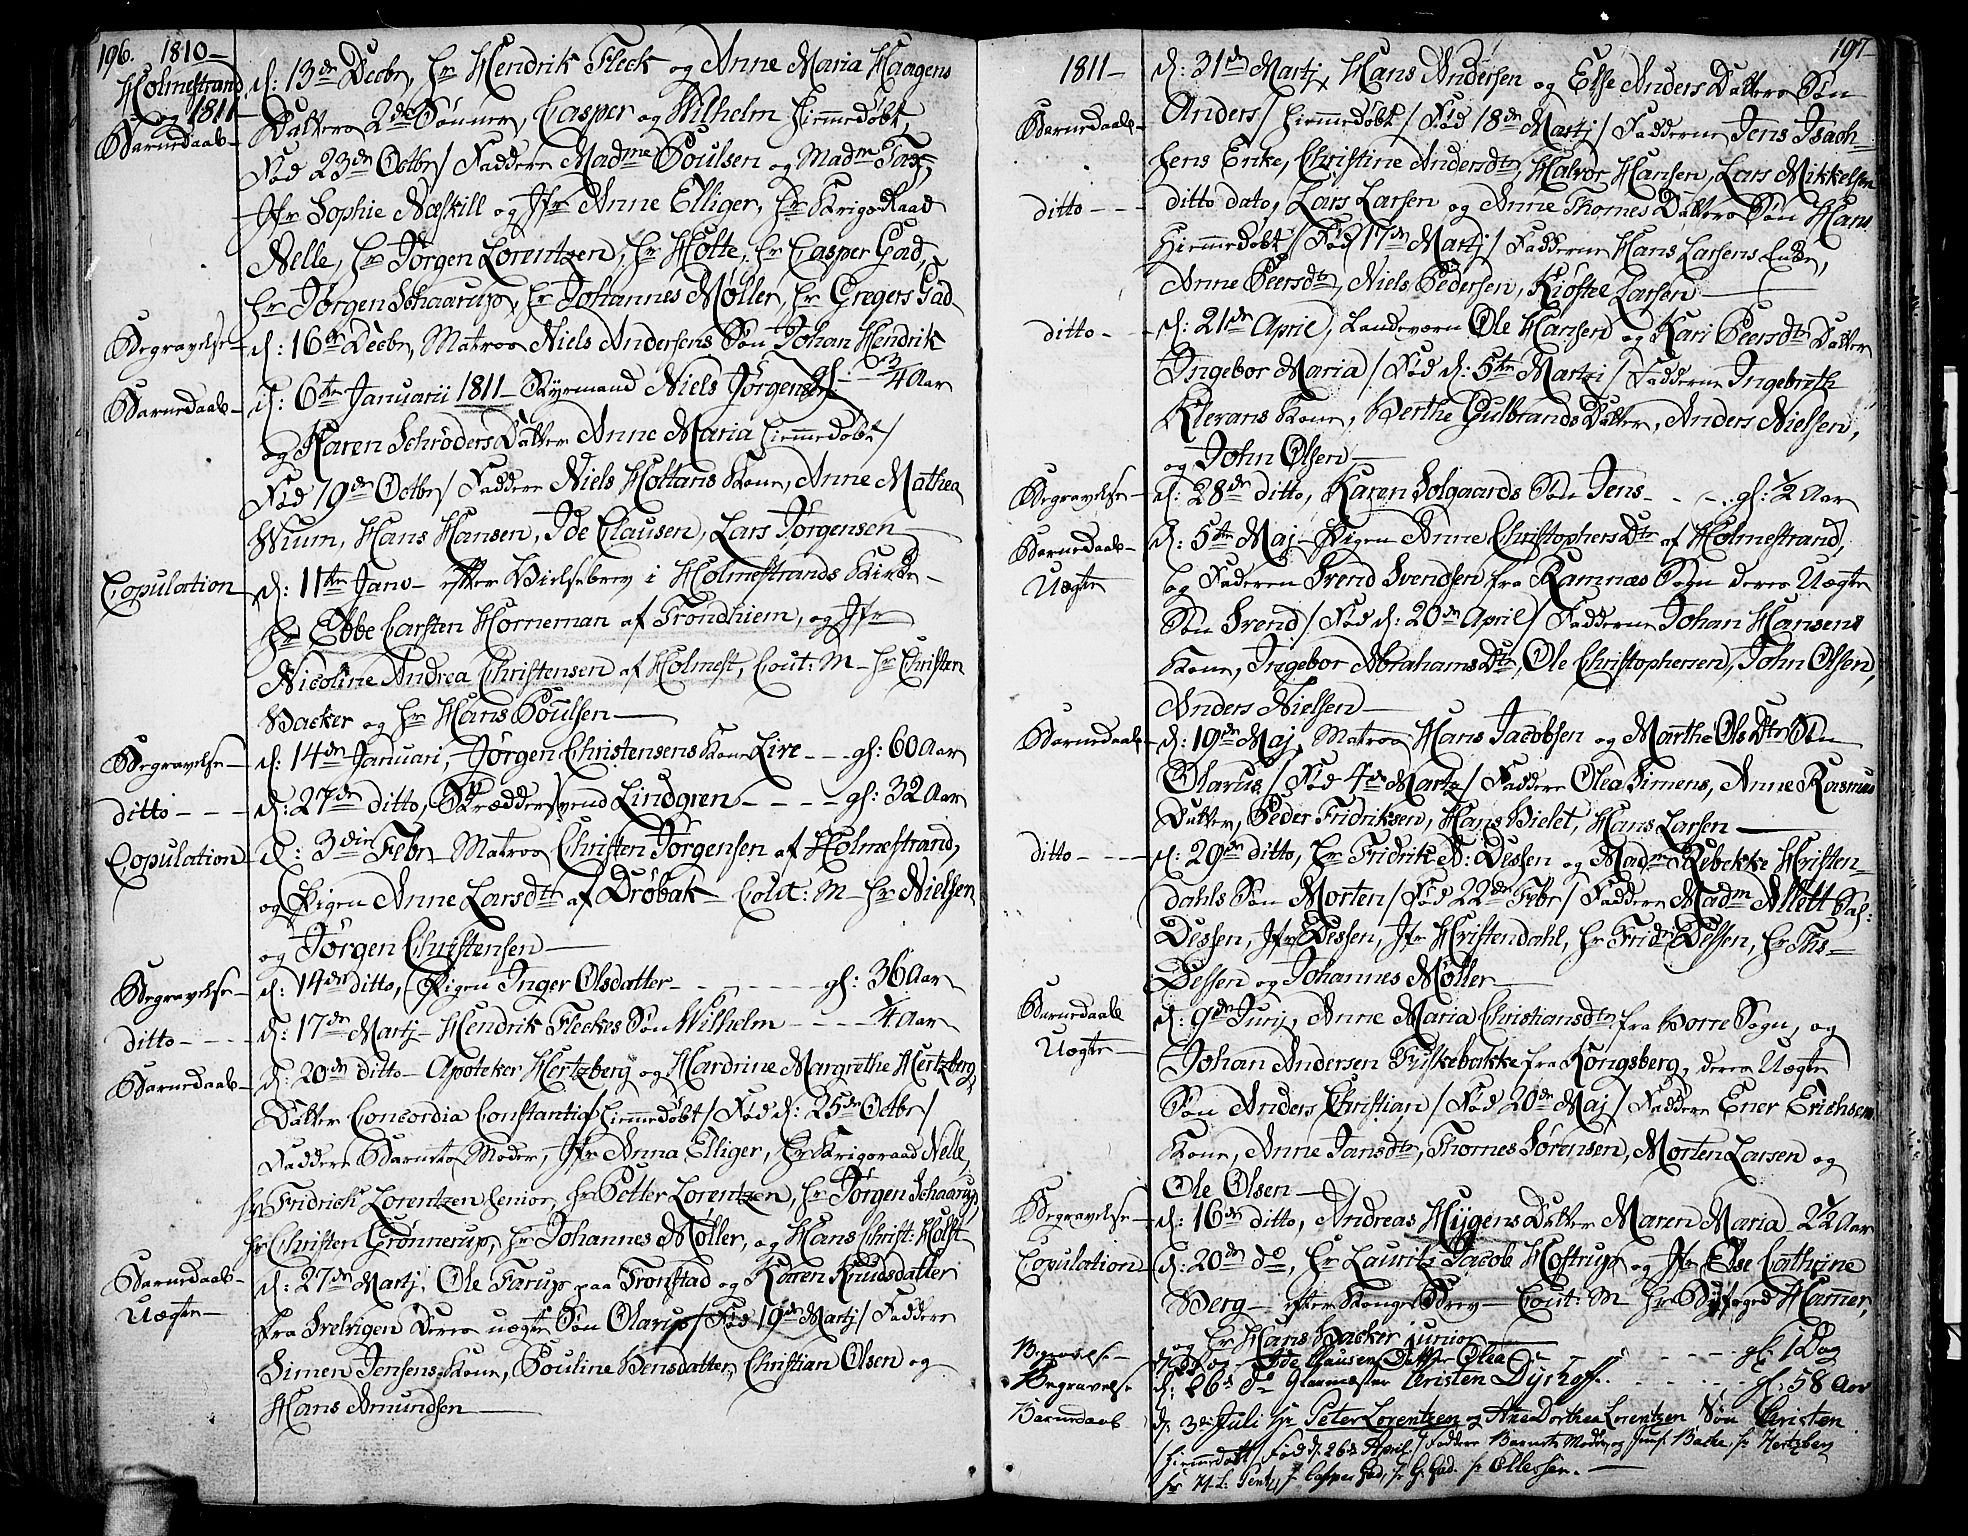 196. 1810-
Holmestrand
og 1811-
Barnedaab-
d: 13de Decbr, Hr Hendrik Fleck og Anne Maria Haagens
Datters 2de Sønner, Casper og Wilhelm hiemmedøbt,
Fød 23de Octbr/ Faddere Madme Poulsen og Madm Fax,
Jfr Sophie Næskill og Jfr Anne Elliger, Hr Krigs Raad
Nelle, Hr Jørgen Lorentzen, Hr Holte, Hr Casper Gad,
Hr Jørgen Schaarup, Hr Johannes Møller, Hr Gregers Gad-
Begravelse-
d: 16de Decbr, Matros Niels Andersens Søn Johan Hendrik
gl: - 3/4 Aar
Barnedaab-
d: 6te Januarii 1811- Styrmand Niels Jørgensen
og Karen Schrøders Datter Anne Maria hiemmedøbt/
Fød 19de Octbr/ Faddere Niels Holtans Kone, Anne Mathea
Wium, Hans Hansen, Ide Clausen, Lars Jørgensen
Copulation
d: 11te Janv- efter Vielsebrev i Holmestrands Kirke-
Hr Ebbe Carsten Horneman af Trondhiem, og Jfr
Nicoline Andrea Christensen af Holmest, Cout: M- Hr Christen
Backer og Hr Hans Poulsen
Begravelse-
d: 14de Januari, Jørgen Christensens Kone Live - - gl: 60 Aar
ditto - - -
d: 27de ditto, Skræddersvend Lindgren - - - - gl: 32 Aar
Copulation
d: 3die Febr- Matros Christen Jørgensen af Holmestrand,
og Pigen Anne Larsdtr af Drøbak- Cout: M- Hr Nielsen
og Jørgen Christensen
Begravelse-
d: 14de ditto, Pigen Inger Olsdatter - - - - - gl: 36 Aar
ditto - - -
d: 17de Martj- Hendrik Fleckes Søn Wilhelm - - - - 1/4 Aar
Barnedaab-
d: 20de ditto- Apoteker Hertzberg og Hardrine Margrethe Hertzberg
Datter Concordia Constantia/ hiemmedøbt/ Fød d: 25de Octbr/
Faddere Barnets Moder, Jfr Anna Elliger, Hr Krigsraad Nelle,
Hr Fridrich Lorentzen Senior, Hr Petter Lorentzen, Hr Jørgen Schaarup,
Hr Christen Grønnerup, Hr Johannes Møller, og Hans Christ: Holst-
Barnedaab-
Uægte-
d: 27de Martj, Ole Farup paa Tronstad og Karen Knudsdatter
fra Svelvigen Deres uægte Søn Olarus/ Fød 19de Martj/ Faddere
Simen Jensens Kone, Pouline Bensdatter, Christian Olsen og
Hans Amundsen
197
1811-
Barnedaab-
d: 31de Martj, Hans Andersen og Else Anders Datters Søn
Anders/ hiemmedøbt/ Fød 18de Martj/ Fadderne Jens Isach-
sens Enke, Christine Andersdtr, Halvor Hansen, Lars Mikkelsen
ditto - - -
ditto dato, Lars Larsen og Anne Thomes Datters Søn Hans
hiemmedøbt/ Fød 17de Martj/ Fadderne Hans Larsens Enke,
Anne Peersdtr, Niels Pedersen, Kiøstel Larsen
ditto - -
d: 21de April, Landevern Ole Hansen og Kari Peersdtr Datter
Ingebor Maria/ Fød d: 5te Martzi/ Fadderne Ingebrigt
Klevans Kone, Berthe Gulbrands Datter, Anders Nielsen,
og John Olsen
Begravelse-
d: 28de ditto, Karen Solgaards Søn Jens - - - gl: 1/2 Aar
Barnedaab-
Uægte
d: 5te Maj- Pigen Anne Christophers Dtr af Holmestrand,
og Faderen Svend Svendsen fra Ramnæs Sogn deres Uægte
Søn Svend/ Fød d: 20de April/ Fadderne Johan Hansens
Kone, Ingebor Abrahams Dtr, Ole Christophersen, John Olsen,
Anders Nielsen
Barnedaab-
d: 19de Maj, Matros Hans Jacobsen og Marthe Ols Dtr Søn
Olarus/ Fød 4de Martz/ Faddere Olea Simens, Anne Rasmus
Datter, Peder Fridriksen, Hans Bielet, Hans Larsen
ditto - - -
d: 29de ditto, Hr Fridrik A: Dessen og Madm Rebekke Kristen-
dahls Søn Morten/ Fød 22de Febr/ Faddere Madm Allett Sal:
Dessen, Jfr Dessen, Jfr Kristendahl, Hr Frid: Dessen, Hr Ths-
Dessen og Johannes Møller
Barnedaab
Uægte-
d: 9de Junj, Anne Maria Christiansdtr fra Borre Sogn, og
Johan Andersen Fiskebakke fra Kongsberg, deres Uægte
Søn Anders Christian/ Fød 20de Maj/ Faddere Ener Erichsens
Kone, Anne Jansdtr, Thomes Sørensen, Morten Larsen og
Ole Olsen
Begravelse-
d: 16de ditto, Andreas Hygens Datter Maren Maria- 2 1/2 Aar
Copulation
d: 20de do, Hr Lauritz Jacob Hostrup og Jfr Else Cathrine
Berg- efter Konge Brev- Cout: M Hr Byfoged Hammer,
og Hr Hans Backer junior
Begravelse-
Ide Clausens Datter Olea - - - gl: 1 Dag
Begravelse
d: 26d do Glarmester Christen Dyrhoff - - - gl: 58 Aar
Barnedaab
d: 3di Juli Hr Peter Lorentzen og Ane Dorthea Lorentzen Søn Christen
/hiemmedøbt/ Fød d: 26d April/ Faddere Barnets Moder, og Jmf. Backe, Hr Hertzberg
Hr H. L. Hr Casper Gad, Hr G. Gad. Hr Ollessen.